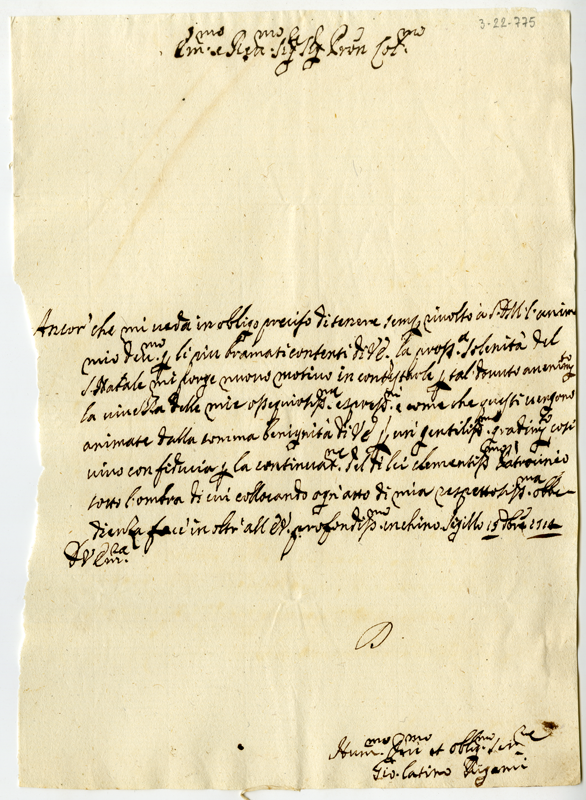 3-22-775
Em.mo e R.mo Sig.r Sig.r Pron Col.mo
Ancor' che mi veda in obligo preciso di tenere semp. rivolto à S.D.M. l'animo
mio dev.mo p. li piu bramati contenti di VE. la pross.a solenità del
S. Natale mi porge nuovo motivo in contestarle p. tal dovuto
la vivezza delle mie ossequiosiss.me espress.ni e come che questi vengono
animate dalla somma benignità di VE p. un' gentiliss.mo gradim.to così
vivo con fiducia p. la continuat.ne del di lei clementiss.mo Patrocinio
sotto l'ombra di cui collocando ogn' atto di mia rispettosiss.ma obbe-
dienza facc' inoltr' all' EV. profondiss.mo inchino. Sigillo 15 Xbre 1714
D V Em.za
D.
Hum.mo Dev.mo et oblig.mo Ser.re
Gio. Latino